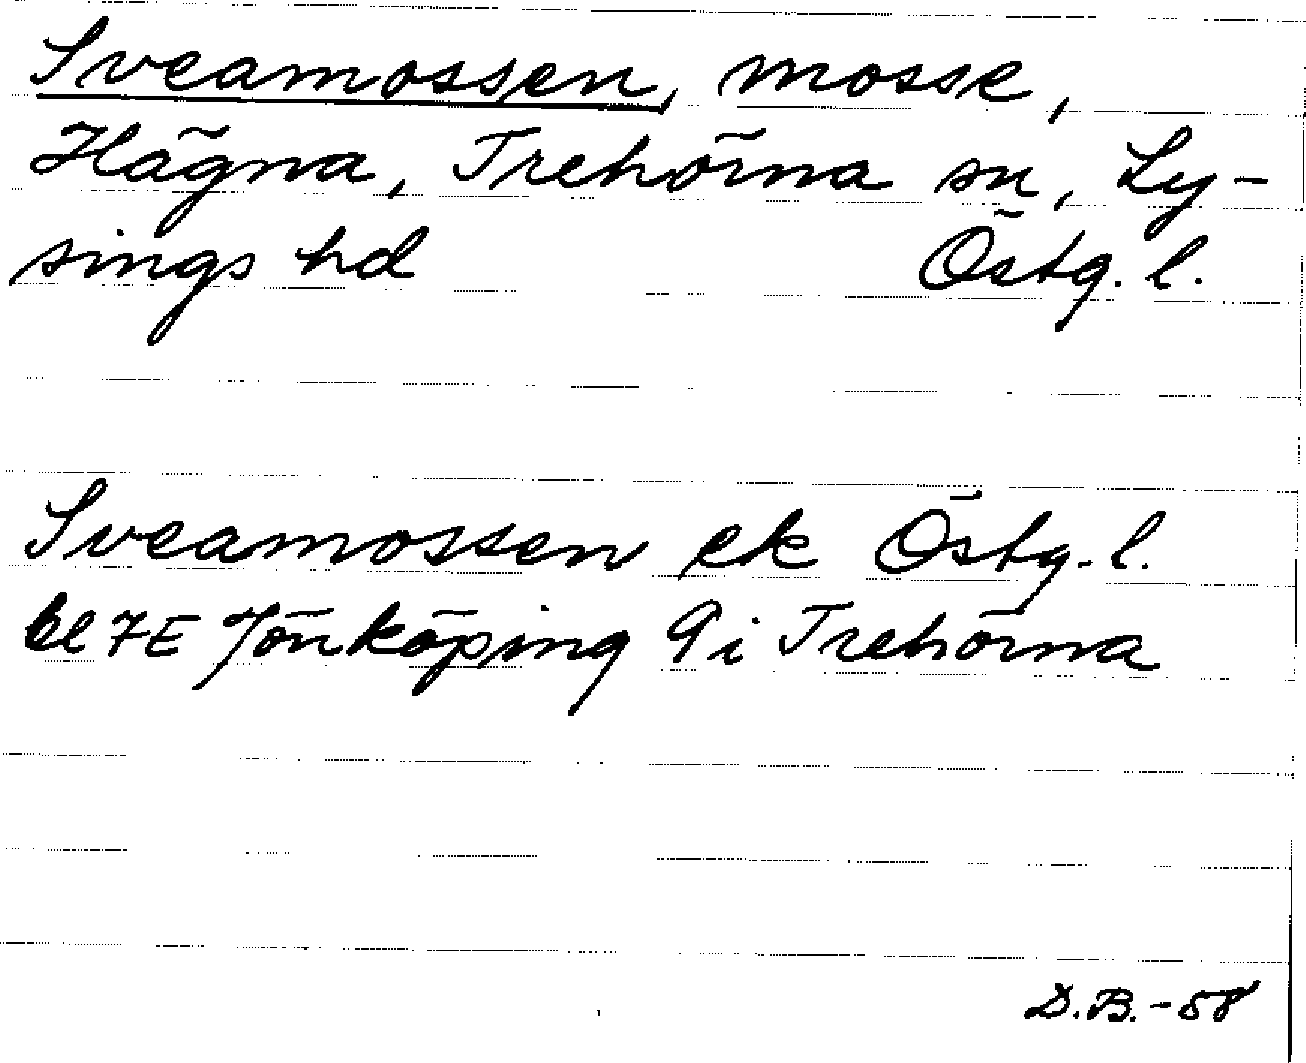 Sveamossen, mosse,
Hägna, Trehörna sn, Ly-
sings hd Östg. l.
Sveamossen ek Östg. l.
bl 7E Jönköping 9i Trehörna
D.B.-58